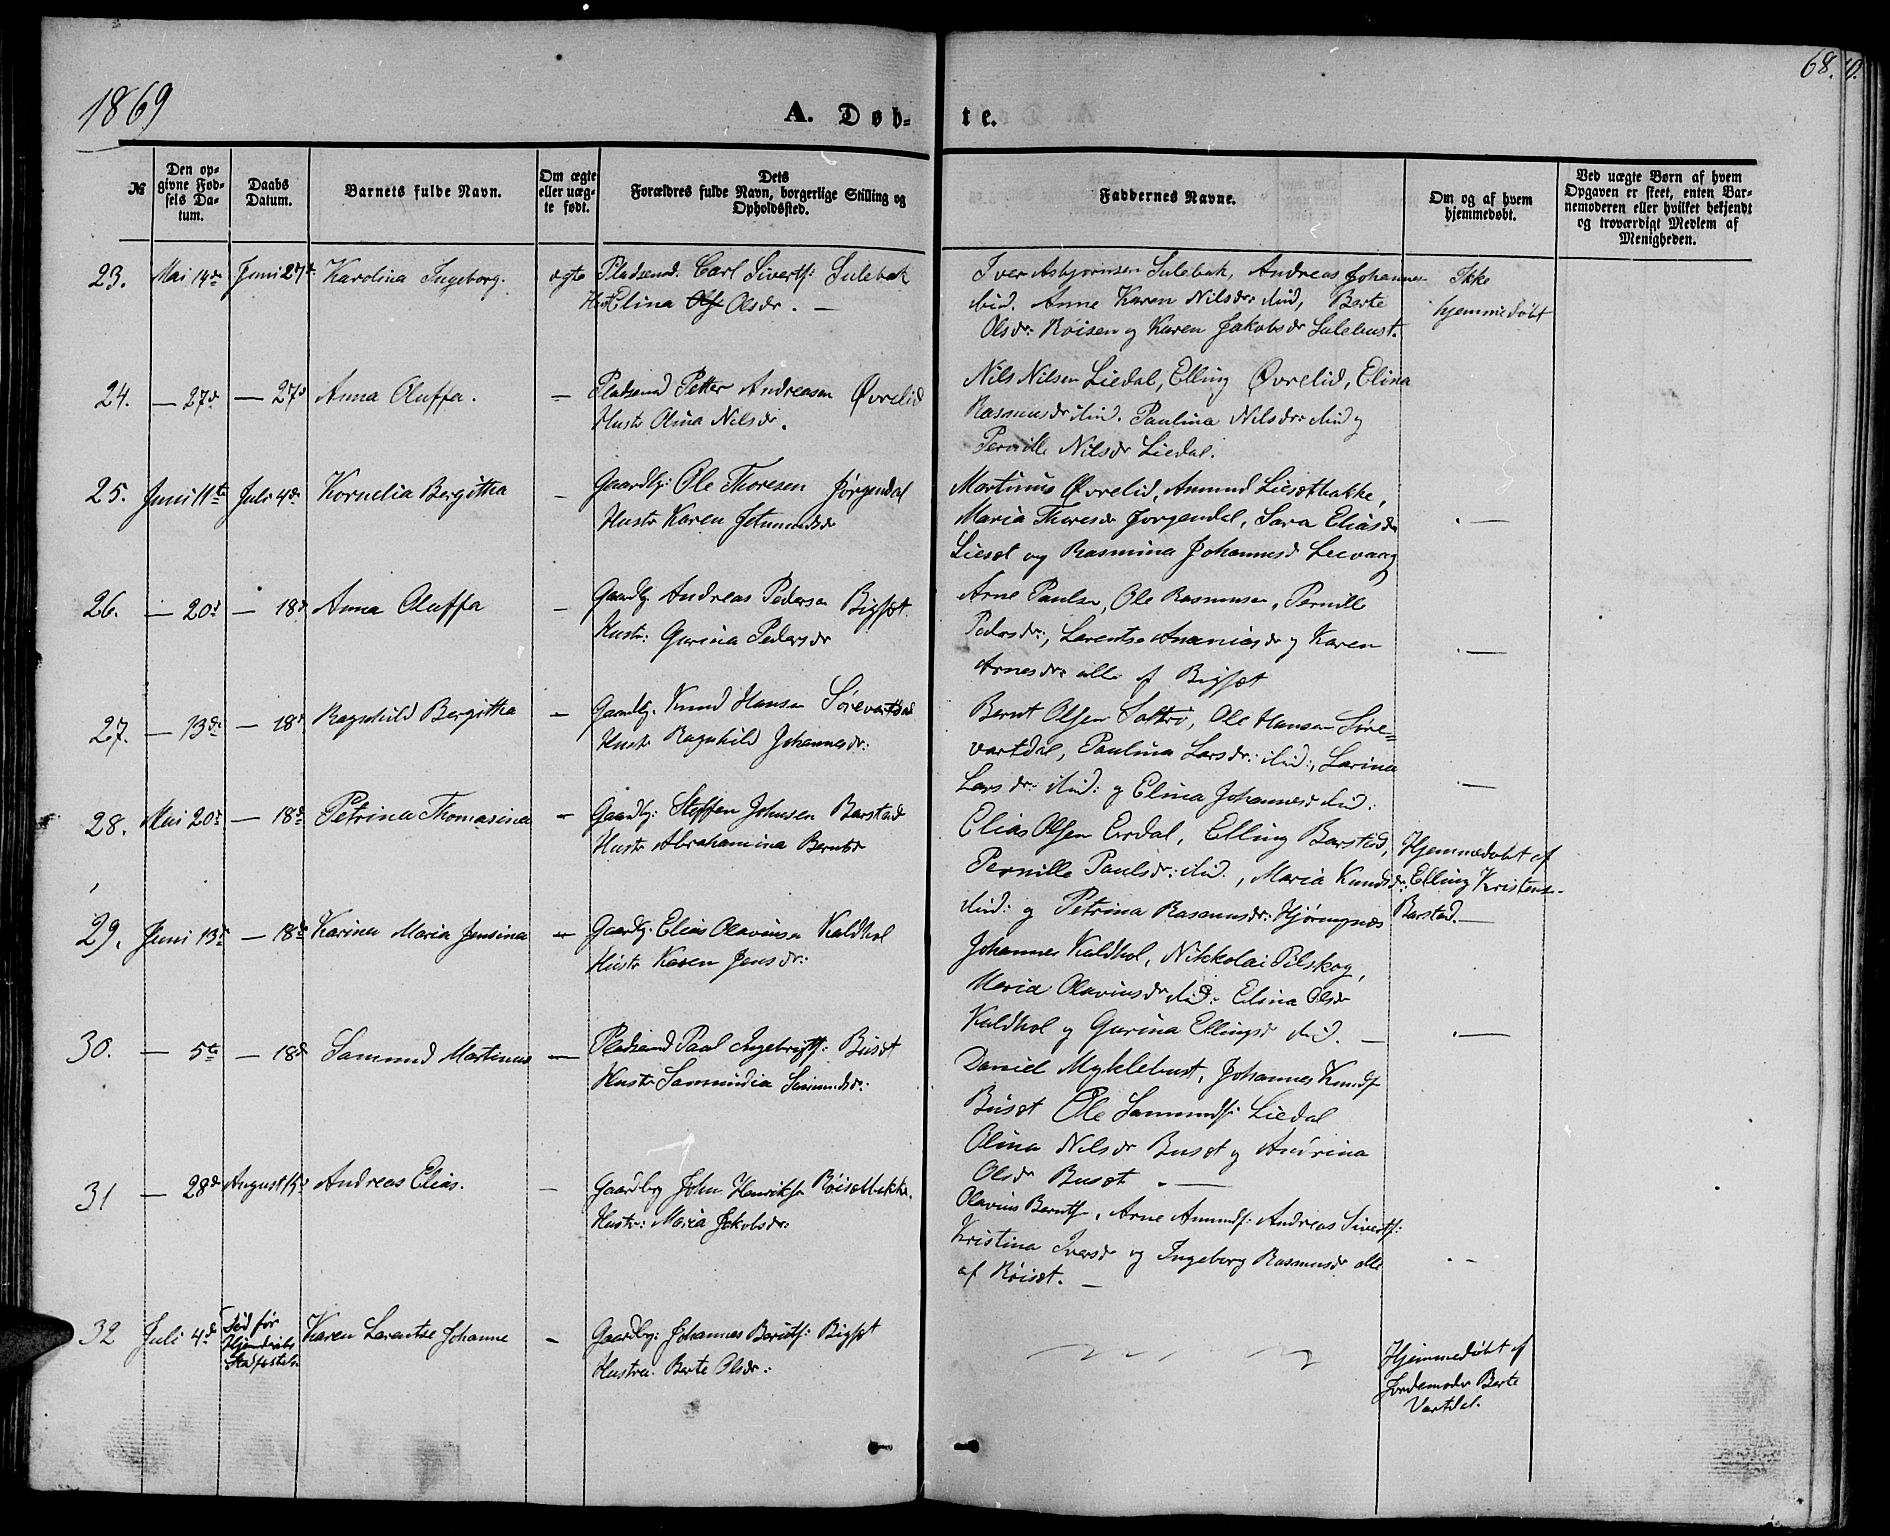 1869
A. Døb-
te.
68.
№
Den op-
givne Fød-
sels Da-
tum.
Daabs
Datum.
Barnets fulde Navn.
Om ægte
eller uæg-
te født.
Dets
Forældres fulde Navn, borgerlige Stilling og
Opholdssted.
Faddernes Navne.
Om og af hvem
hjemmedøbt.
Ved uægte Børn af hvem
Opgaven er skeet, enten Bar-
nemoderen eller hvilket bekjendt
og troværdigt Medlem af
Menigheden.
23. Mai 14de Juni 27de Karolina Ingeborg. ægte Pladsemd. Carl Siverts: Sulebak
Elina Olsdr. —
Iver Asbjørnsen Sulebak, Andreas Johannes
ibid. Anne Karen Nilsdr: ibid, Berte
Olsdr: Røisen og Karen Jakobsdr Sulebust.
Ikke
hjemmedøbt
24. — 27de — 27de Anna Oluffa. — Pladsemd Petter Andreasen Øvrelid
Hustr Olina Nilsdr.
Nils Nilsen Liedal, Elling Øvrelid, Elina
Rasmusdr ibid. Paulina Nilsdr: ibid og
Pernille Nilsdr Liedal.
25. Juni 11te Juli 4de Kornelia Bergitha — Gaardbr: Ole Thoresen Jørgendal
Hustr Karen Jetmundsdr
Martinus Øvrelid, Amund Liesetbakke,
Maria Thoresdr Jørgendal, Sara Eliasdr
Lieset og Rasmina Johannesdr
. —
26. — 20de — 18de Anna Oluffa — Gaardbr. Andreas Pedersen Bigset.
Hustr: Gurina Pedersdr
Arne Paulsen, Ole Rasmusen, Pernille
Pedersdr:, Larentse Ananiasdr og Karen
Arnesdr: alle af Bigset
. —
27. — 13de — 18de Ragnhild Bergitha — Gaardbr. Knud Hansen Sørevartdal
Hustr Ragnhild Johannesdr:
Bernt Olsen Sætre, Ole Hansen Søre=
vartdal, Paulina Larsdr: ibid:, Larina
Larsdr: ibid: og Elina Johannesdr ibid:
. —
28. Mai 20de — 18de Petrina Thomasina — Gaardbr: Steffen Johnsen Barstad
Hustr Abrahamina Berntsdr
Elias Olsen Erdal, Elling Barstad,
Pernille Paulsdr: ibid, Maria Knudsdr:
ibid: og Petrina Rasmusdr: Hjørungnes
Hjemmedøbt af
Elling Kristens.
Barstad. —
29. Juni 13de — 18de Karina Maria Jensina — Gaardbr. Elias Olavusen Kaldhol
Hustr Karen Jensdr:
Johannes Kaldhol, Nikkolai Pilskog,
Maria Olavusdr ibid: Elina Olsdr
Kaldhol og Gurina Ellingsdr ibid. —
. —
30. — 5te — 18de Samund Martinus — Pladsemd Paul Ingebrigts: Buset
Hustr Samundia Samundsdr:
Daniel Myklebust, Johannes Knuds
Buset Ole Samunds: Liedal
Olina Nilsdr Buset og Andrina
Olsdr Buset . —
31 — 28de August 15de Andreas Elias. — Gaardbr John Henriksen Røisetbakke.
Hustr: Maria Jakobsdr:
Olavus Bernts., Arne Amunds: Andreas Siverts:
Kristina Iversdr og Ingeborg Rasmusdr alle
af Røiset. —
. —
32 Juli 4de Død før
Stadfæstelse Karen Larentse Johanne — Gaardbr: Johannes Bernts: Bigset
Hustru. Berte Olsdr:
Hjemmedøbt af
Jordemoder Berte
Vartdal.